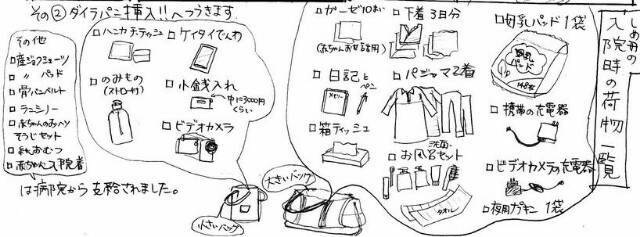 入院時の荷物一覧
□母乳パッド1袋
母乳パッド
□携帯の充電器
□ビデオカメラの充電器
□夜用ナプキン 1袋
□ガーゼ10まい
(赤ちゃんお世話用)
□下着3日分
□日記とペン
メモリー
□パジャマ2着
□箱ティッシュ
□お風呂セット
洗面
タオル
大きいバッグ
その②ダイラパニ挿入!!へつづきます
□ハンカチ・ティッシュ
□ケイタイでんわ
□のみもの
(ストロー付)
□小銭入れ
中に3000円くらい
□ビデオカメラ
小さいバッグ
その他
□産ジョクショーツ
□〃 パッド
□骨バンベルト
□ランシノー
□赤ちゃんの
そうじセット
□紙おむつ
□赤ちゃん入院着
は病院から支給されました。